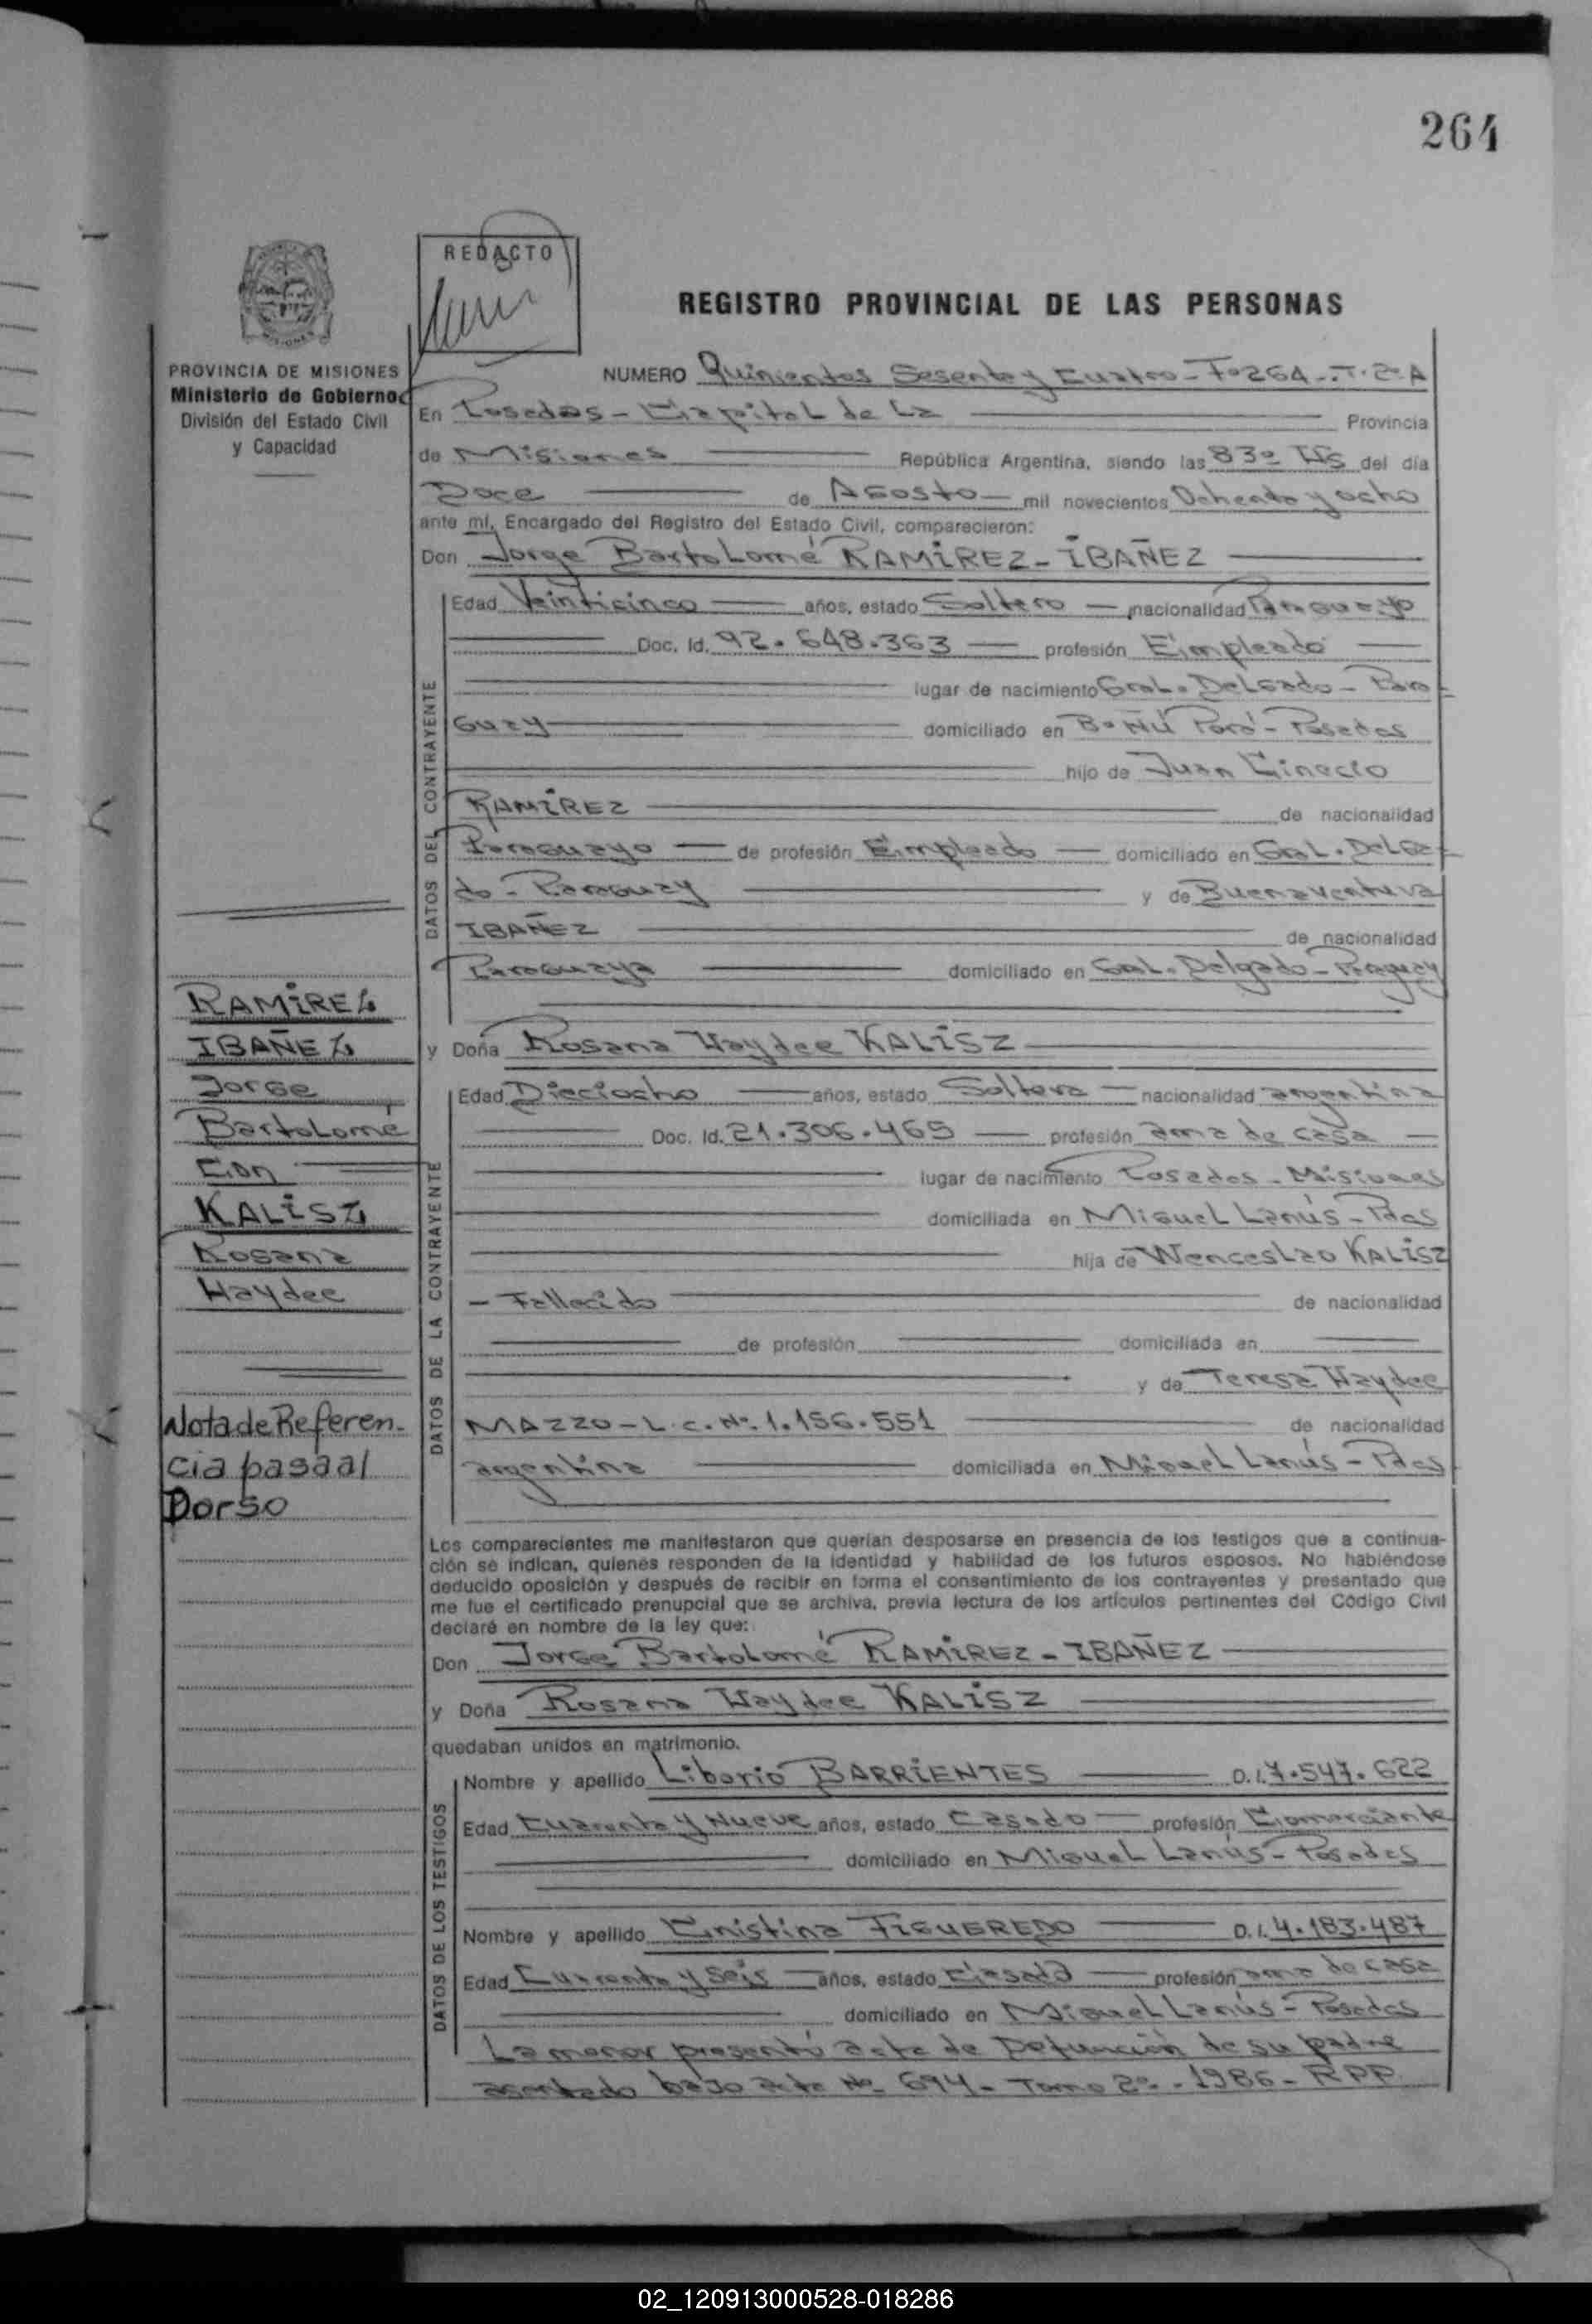 264
REDACTO
REGISTRO PROVINCIAL DE LAS PERSONAS
PROVINCIA DE MISIONES
Ministerio de Gobierno
División del Estado Civil
y Capacidad
NUMERO Quinientos Sesenta y Cuatro - Fº 264 - T. 2º A
En Posadas - Capital de La Provincia
de Misiones República Argentina, siendo las 8 30 Hs del día
Doce de Agosto mil novecientos Ochenta y ocho
ante mí, Encargado del Registro del Estado Civil, comparecieron:
Don Jorge Bartolomé RAMIREZ - IBAÑEZ
DATOS DEL CONTRAYENTE
Edad Veinticinco años, estado Soltero nacionalidad Paraguayo
Doc. Id. 92.648.363 profesión Empleado
lugar de nacimiento Gral. Delgado - Para
guay domiciliado en Bº Ñú Porá - Posadas
hijo de Juan Ginecio
RAMIREZ de nacionalidad
Paraguayo de profesión Empleado domiciliado en Gral. Delga
do - Paraguay y de Buenaventura
IBAÑEZ de nacionalidad
Paraguaya domiciliado en Gral. Delgado - Paraguay
RAMIREZ
IBAÑEZ
Jorge
Bartolomé
Con
KALISZ
Rosana
Haydee
Nota de Referen-
cia pasa al
Dorso
y Doña Rosana Haydee KALISZ
DATOS DE LA CONTRAYENTE
Edad Dieciocho años, estado Soltera nacionalidad argentina
Doc. Id. 21.306.465 profesión ama de casa
lugar de nacimiento Posadas - Misiones
domiciliada en Miguel Lanús - Pdas
hija de Wenceslao KALISZ
- Fallecido de nacionalidad
de profesión domiciliada en
y de Teresa Haydee
MAZZO - L.C. Nº 1.156.551 de nacionalidad
argentina domiciliada en Miguel Lanús - Pdas
Los comparecientes me manifestaron que querían desposarse en presencia de los testigos que a continua-
ción se indican, quienes responden de la identidad y habilidad de los futuros esposos. No habiéndose
deducido oposición y después de recibir en forma el consentimiento de los contrayentes y presentado que
me fue el certificado prenupcial que se archiva, previa lectura de los artículos pertinentes del Código Civil
declaré en nombre de la ley que:
Don Jorge Bartolomé RAMIREZ - IBAÑEZ
y Doña Rosana Haydee KALISZ
quedaban unidos en matrimonio.
DATOS DE LOS TESTIGOS
Nombre y apellido Liborio BARRIENTES D.I. 7.547.622
Edad Cuarenta y Nueve años, estado Casado profesión Comerciante
domiciliado en Miguel Lanús - Posadas
Nombre y apellido Cristina FIGUEREDO D.I. 4.183.487
Edad Cuarenta y Seis años, estado Casada profesión ama de casa
domiciliado en Miguel Lanús - Posadas
La menor presentó acta de Defunción de su padre
asentado bajo acta Nº 694 - Tomo 2º - 1986 - RPP.
02_120913000528-018286